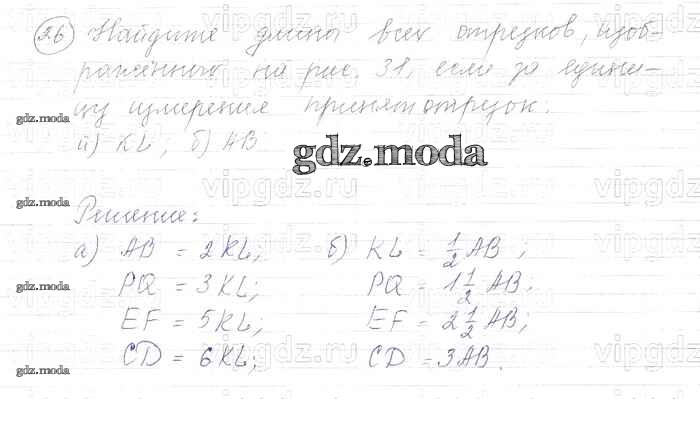 26 Найдите длины всех отрезков, изоб-
ражённого на рис. 31, если за едини-
цу измерения принят отрезок:
а) KL; б) AB
gdz.moda
Решение:
а) AB = 2KL; б) KL = 1/2 AB;
PQ = 3KL; PQ = 1 1/2 AB;
EF = 5KL; EF = 2 1/2 AB;
CD = 6KL; CD = 3AB.
gdz.moda
gdz.moda
gdz.moda
gdz.moda
vipgdz.ru